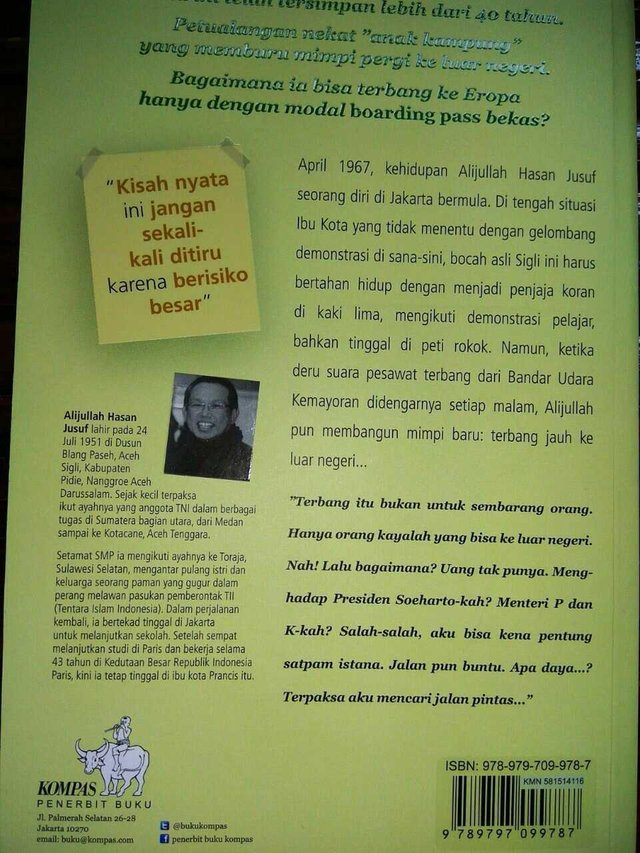 telah tersimpan lebih dari 40 tahun.
Petualangan nekat "anak kampung"
yang memburu mimpi pergi ke luar negeri.
Bagaimana ia bisa terbang ke Eropa
hanya dengan modal boarding pass bekas?
"Kisah nyata
ini jangan
sekali-
kali ditiru
karena berisiko
besar"
April 1967, kehidupan Alijullah Hasan Jusuf
seorang diri di Jakarta bermula. Di tengah situasi
Ibu Kota yang tidak menentu dengan gelombang
demonstrasi di sana-sini, bocah asli Sigli ini harus
bertahan hidup dengan menjadi penjaja koran
di kaki lima, mengikuti demonstrasi pelajar,
bahkan tinggal di peti rokok. Namun, ketika
deru suara pesawat terbang dari Bandar Udara
Kemayoran didengarnya setiap malam, Alijullah
pun membangun mimpi baru: terbang jauh ke
luar negeri...
Alijullah Hasan
Jusuf lahir pada 24
Juli 1951 di Dusun
Blang Paseh, Aceh
Sigli, Kabupaten
Pidie, Nanggroe Aceh
Darussalam. Sejak kecil terpaksa
ikut ayahnya yang anggota TNI dalam berbagai
tugas di Sumatera bagian utara, dari Medan
sampai ke Kotacane, Aceh Tenggara.
Setamat SMP ia mengikuti ayahnya ke Toraja,
Sulawesi Selatan, mengantar pulang istri dan
keluarga seorang paman yang gugur dalam
perang melawan pasukan pemberontak TII
(Tentara Islam Indonesia). Dalam perjalanan
kembali, ia bertekad tinggal di Jakarta
untuk melanjutkan sekolah. Setelah sempat
melanjutkan studi di Paris dan bekerja selama
43 tahun di Kedutaan Besar Republik Indonesia
Paris, kini ia tetap tinggal di ibu kota Prancis itu.
"Terbang itu bukan untuk sembarang orang.
Hanya orang kayalah yang bisa ke luar negeri.
Nah! Lalu bagaimana? Uang tak punya. Meng-
hadap Presiden Soeharto-kah? Menteri P dan
K-kah? Salah-salah, aku bisa kena pentung
satpam istana. Jalan pun buntu. Apa daya...?
Terpaksa aku mencari jalan pintas..."
KOMPAS
PENERBIT BUKU
Jl. Palmerah Selatan 26-28
Jakarta 10270
email: buku@kompas.com
@bukukompas
penerbit buku kompas
ISBN: 978-979-709-978-7
KMN 581514116
9 789797 099787